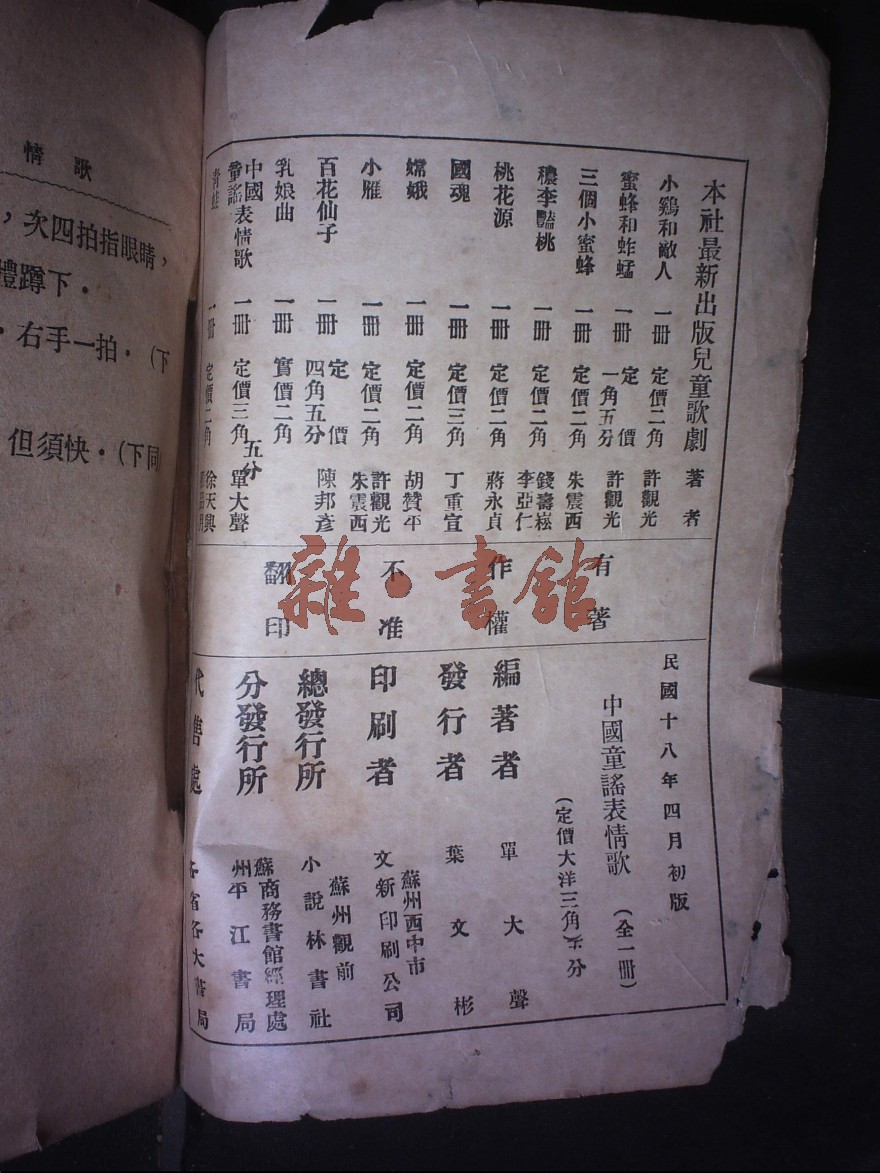 本社最新出版兒童歌劇 著者
小鷄和敵人 一冊 定價二角 許觀光
蜜蜂和蚱蜢 一冊 定價一角五分 許觀光
三個小蜜蜂 一冊 定價二角 朱震西
穠李豔桃 一冊 定價二角 錢壽崧 李亞仁
桃花源 一冊 定價二角 蔣永貞
國魂 一冊 定價三角 丁重宣
嫦娥 一冊 定價二角 胡贊平
小雁 一冊 定價二角 許觀光 朱震西
百花仙子 一冊 定價四角五分 陳邦彥
乳娘曲 一冊 實價二角
中國童謠表情歌 一冊 定價三角五分 單大聲
青蛙 一冊 定價二角 徐天興
有著
作權
不准
翻印
民國十八年四月初版
中國童謠表情歌 (全一冊)
(定價大洋三角)五分
編著者 單大聲
發行者 葉文彬
印刷者 蘇州西中市 文新印刷公司
總發行所 蘇州觀前 小說林書社
分發行所 蘇商務書館經理處 州平江書局
代售處 各省各大書局
情歌
,次四拍指眼睛,
禮蹲下。
。右手一拍。(下
但須快。(下同
雜·書館